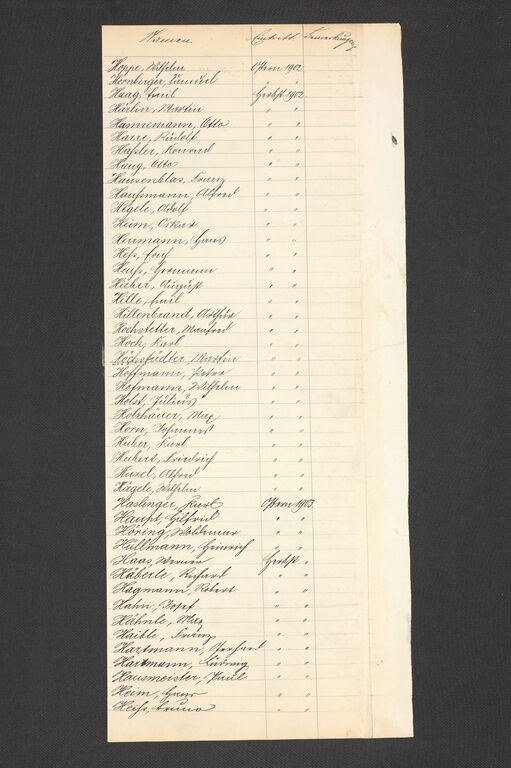 Namen. Eintritt Bemerkungen
Hoppe, Wilhelm Ostern 1902.
Hornberger, Samuel " "
Haag, Emil Herbst 1902.
Härlin, Martin " "
Hannemann, Otto " "
Harre, Rudolf " "
Häfsler, Konrad " "
Haug, Otto " "
Hausenblas, Franz " "
Haufsmann, Alfred " "
Hegele, Adolf " "
Heim, Oskar " "
Herrmann, Hans " "
Hefs, Erich " "
Heufs, Hermann " "
Hieber, August " "
Hille, Emil " "
Hillenbrand, Arthur " "
Hochstetter, Manfred " "
Hoch, Karl " "
Höchstädter, Martin " "
Hoffmann, Peter " "
Hofmann, Wilhelm " "
Holst, Julius " "
Holzhäuer, Max " "
Horn, Johannes " "
Huber, Karl " "
Hubert, Friedrich " "
Huzel, Alfred " "
Hägele, Wilhelm " "
Haslinger, Karl Ostern 1903.
Haupt, Hilfrid " "
Höring, Waldemar " "
Hüllmann, Heinrich " "
Haas, Werner Herbst "
Häberle, Richard " "
Hagmann, Robert " "
Hahn, Josef " "
Hähnle, Max " "
Haible, Franz " "
Hartmann, Gerhard " "
Hartmann, Ludwig " "
Hausmeister, Paul " "
Heim, Hans " "
Heifs, Bruno " "